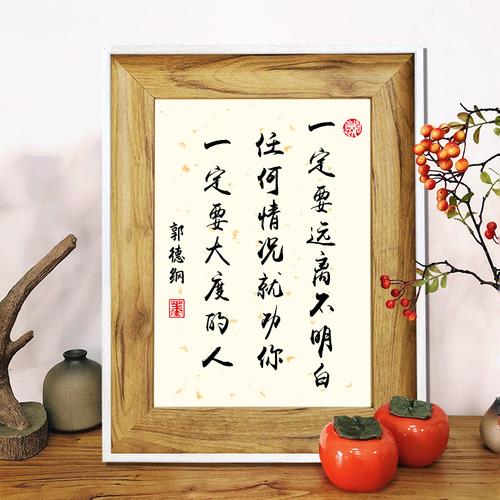 一定要远离不明白
任何情况就劝你
一定要大度的人
郭德纲